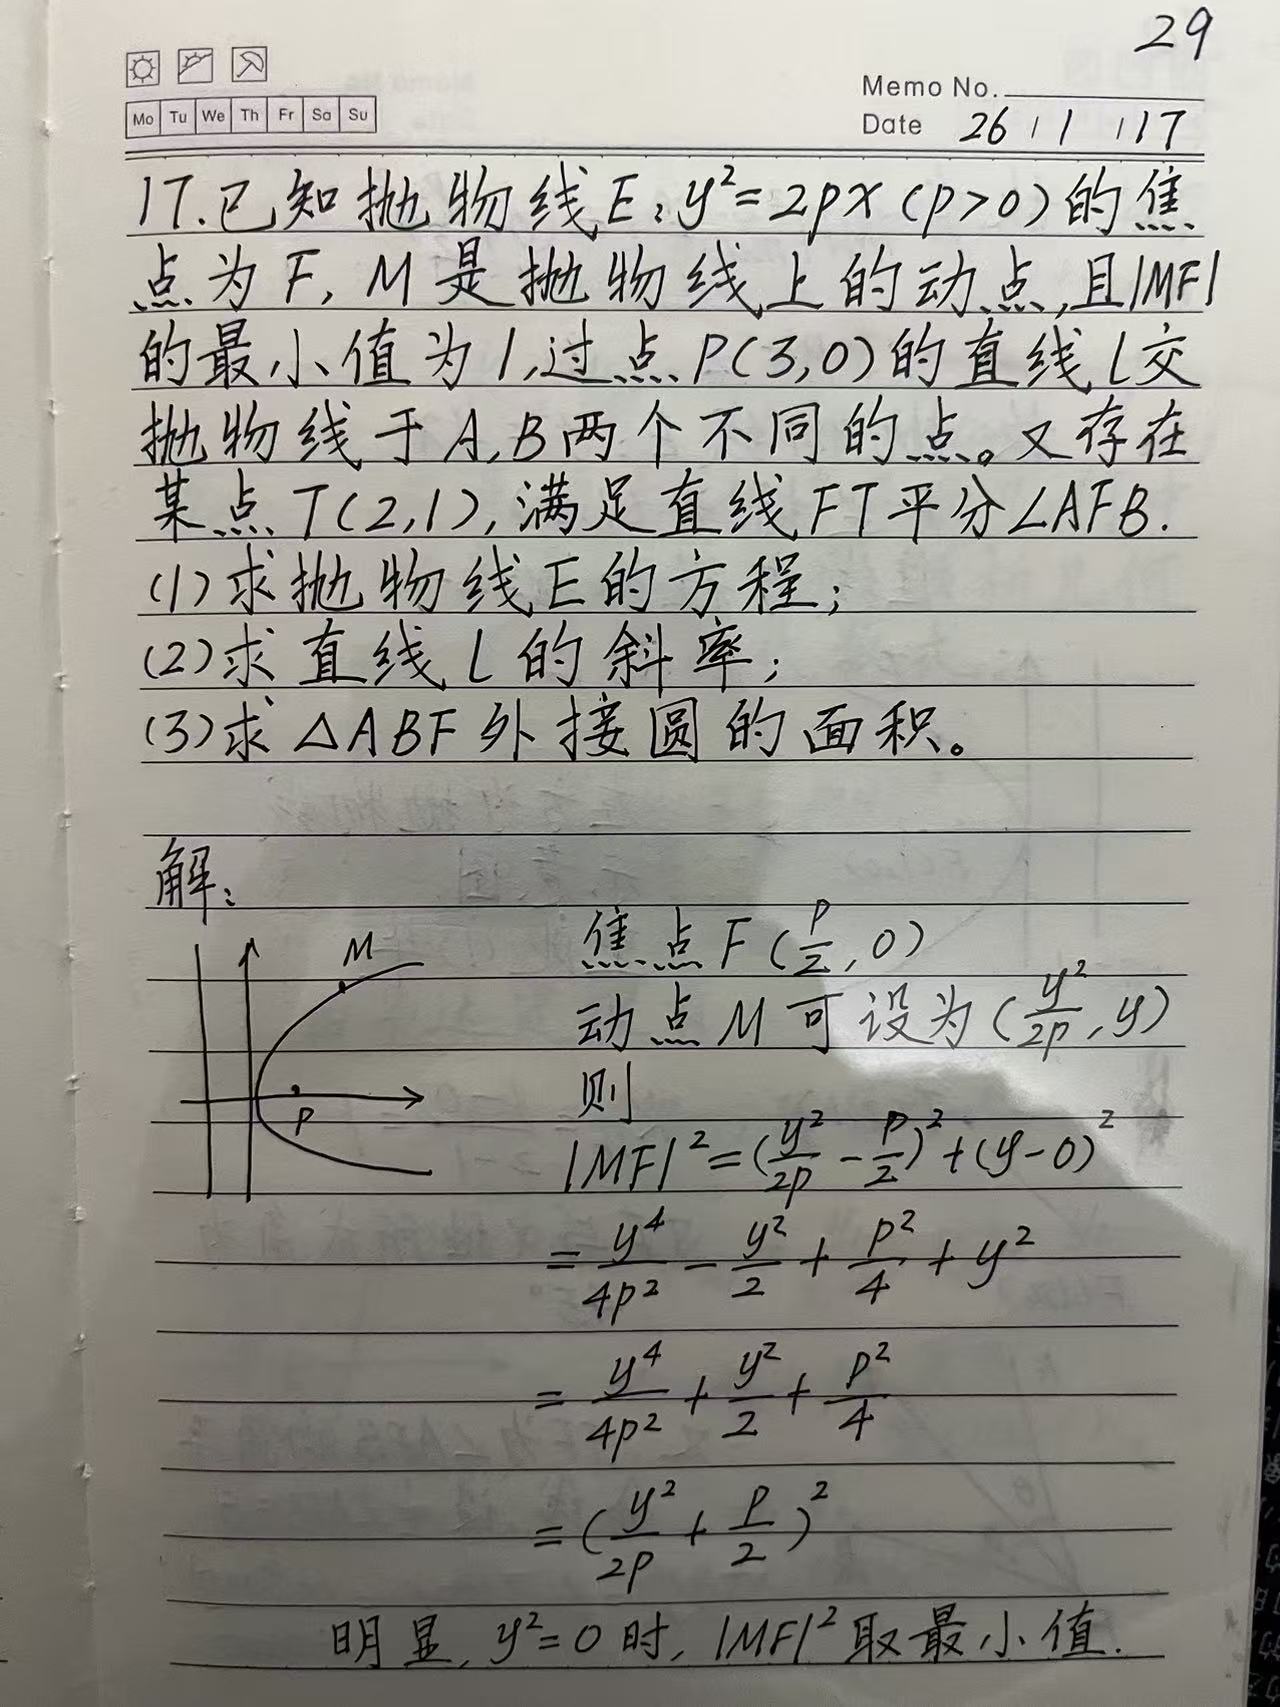 29
Memo No.
Mo Tu We Th Fr Sa Su
Date 26 / 1 / 17
17.已知抛物线E:y²=2px(p>0)的焦
点为F,M是抛物线上的动点,且|MF|
的最小值为1,过点P(3,0)的直线l交
抛物线于A,B两个不同的点。又存在
某点T(2,1),满足直线FT平分∠AFB.
(1)求抛物线E的方程;
(2)求直线l的斜率;
(3)求△ABF外接圆的面积。
解:
M
P
焦点F(p/2,0)
动点M可设为(y²/2p,y)
则
|MF|²=(y²/2p-p/2)²+(y-0)²
=y⁴/4p²-y²/2+p²/4+y²
=y⁴/4p²+y²/2+p²/4
=(y²/2p+p/2)²
明显,y²=0时,|MF|²取最小值.